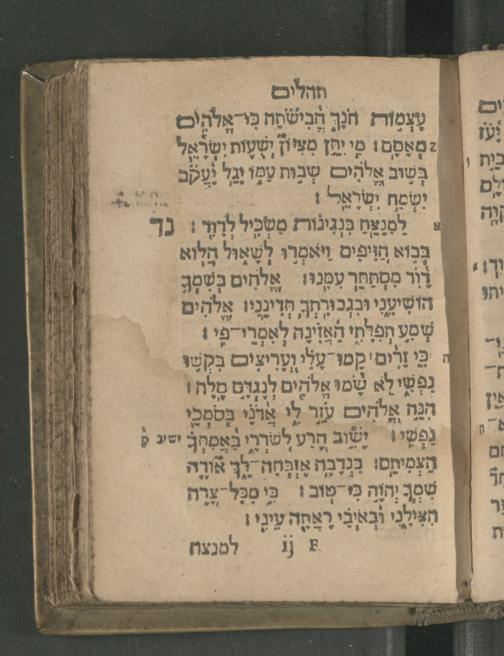 תהלים
עַצְמ֣וֹת חֹנָ֑ךְ הֱ֝בִשֹׁ֗תָה כִּֽי־אֱלֹהִ֥ים
מְאָסָֽם׃ מִ֥י יִתֵּ֣ן מִצִּיּוֹן֮ יְשֻׁע֢וֹת יִשְׂרָ֫אֵ֥ל
בְּשׁ֣וּב אֱ֭לֹהִים שְׁב֣וּת עַמּ֑וֹ יָגֵ֥ל יַ֝עֲקֹ֗ב
יִשְׂמַ֥ח יִשְׂרָאֵֽל׃
נד
לַמְנַצֵּ֥חַ בִּנְגִינֹ֗ת מַשְׂכִּ֥יל לְדָוִֽד׃
בְּב֣וֹא הַ֭זִּיפִים וַיֹּאמְר֣וּ לְשָׁא֑וּל הֲלֹ֥א
דָ֝וִ֗ד מִסְתַּתֵּ֥ר עִמָּֽנוּ׃ אֱ֭לֹהִים בְּשִׁמְךָ֣
הוֹשִׁיעֵ֑נִי וּבִגְבוּרָתְךָ֥ תְדִינֵֽנִי׃ אֱ֭לֹהִים
שְׁמַ֣ע תְּפִלָּתִ֑י הַ֝אֲזִ֗ינָה לְאִמְרֵי־פִֽי׃
ה
כִּ֤י זָרִ֨ים׀ קָ֤מוּ עָלַ֗י וְֽ֭עָרִיצִים בִּקְשׁ֣וּ
נַפְשִׁ֑י לֹ֤א שָׂ֨מוּ אֱלֹהִ֖ים לְנֶגְדָּ֣ם סֶֽלָה׃
הִנֵּ֣ה אֱ֭לֹהִים עֹזֵ֣ר לִ֑י אֲ֝דֹנָ֗י בְּֽסֹמְכֵ֥י
נַפְשִֽׁי׃ יָשׁ֣וּב הָ֭רַע לְשֹׁרְרָ֑י בַּ֝אֲמִתְּךָ֗
ישיב ק
הַצְמִיתֵֽם׃ בִּנְדָבָ֥ה אֶזְבְּחָה־לָּ֑ךְ א֤וֹדֶה
שִּׁמְךָ֖ יְהוָ֣ה כִּי־טֽוֹב׃ כִּ֣י מִכָּל־צָ֭רָה
הִצִּילָ֑נִי וּ֝בְאֹיְבַ֗י רָאֲתָ֥ה עֵינִֽי׃
F ij
למנצח